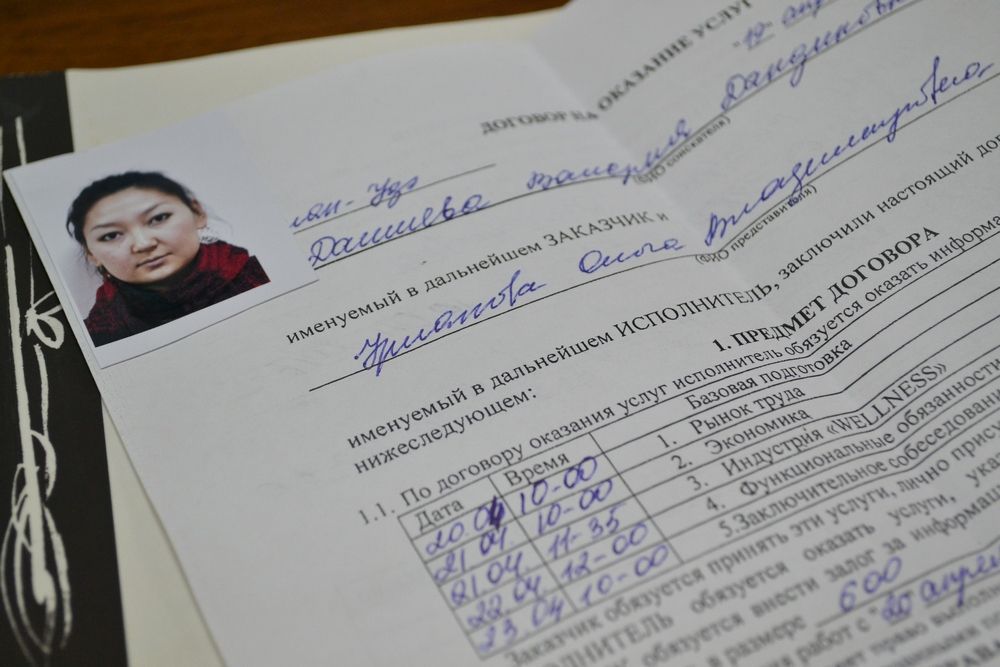 ДОГОВОР НА ОКАЗАНИЕ УСЛУГ
"19" апр
лан-Удэ
Дашиева Валерия Дандиковн
(ФИО соискателя)
именуемый в дальнейшем ЗАКАЗЧИК и
Ольга Владимировна,
(ФИО представителя)
именуемый в дальнейшем ИСПОЛНИТЕЛЬ, заключили настоящий дого
нижеследующем:
1. ПРЕДМЕТ ДОГОВОРА
1.1. По договору оказания услуг исполнитель обязуется оказать информа
Дата Время Базовая подготовка
20.04 10-00 1. Рынок труда
21.04 10-00 2. Экономика
21.04 11-35 3. Индустрия «WELLNESS»
22.04 12-00 4. Функциональные обязанности
23.04 10-00 5.Заключительное собеседовани
Заказчик обязуется принять эти услуги, лично прису
ОЛНИТЕЛЬ обязуется оказать услуги, указ
обязуется внести залог за информац
в размере 600
работ с "20 апрел